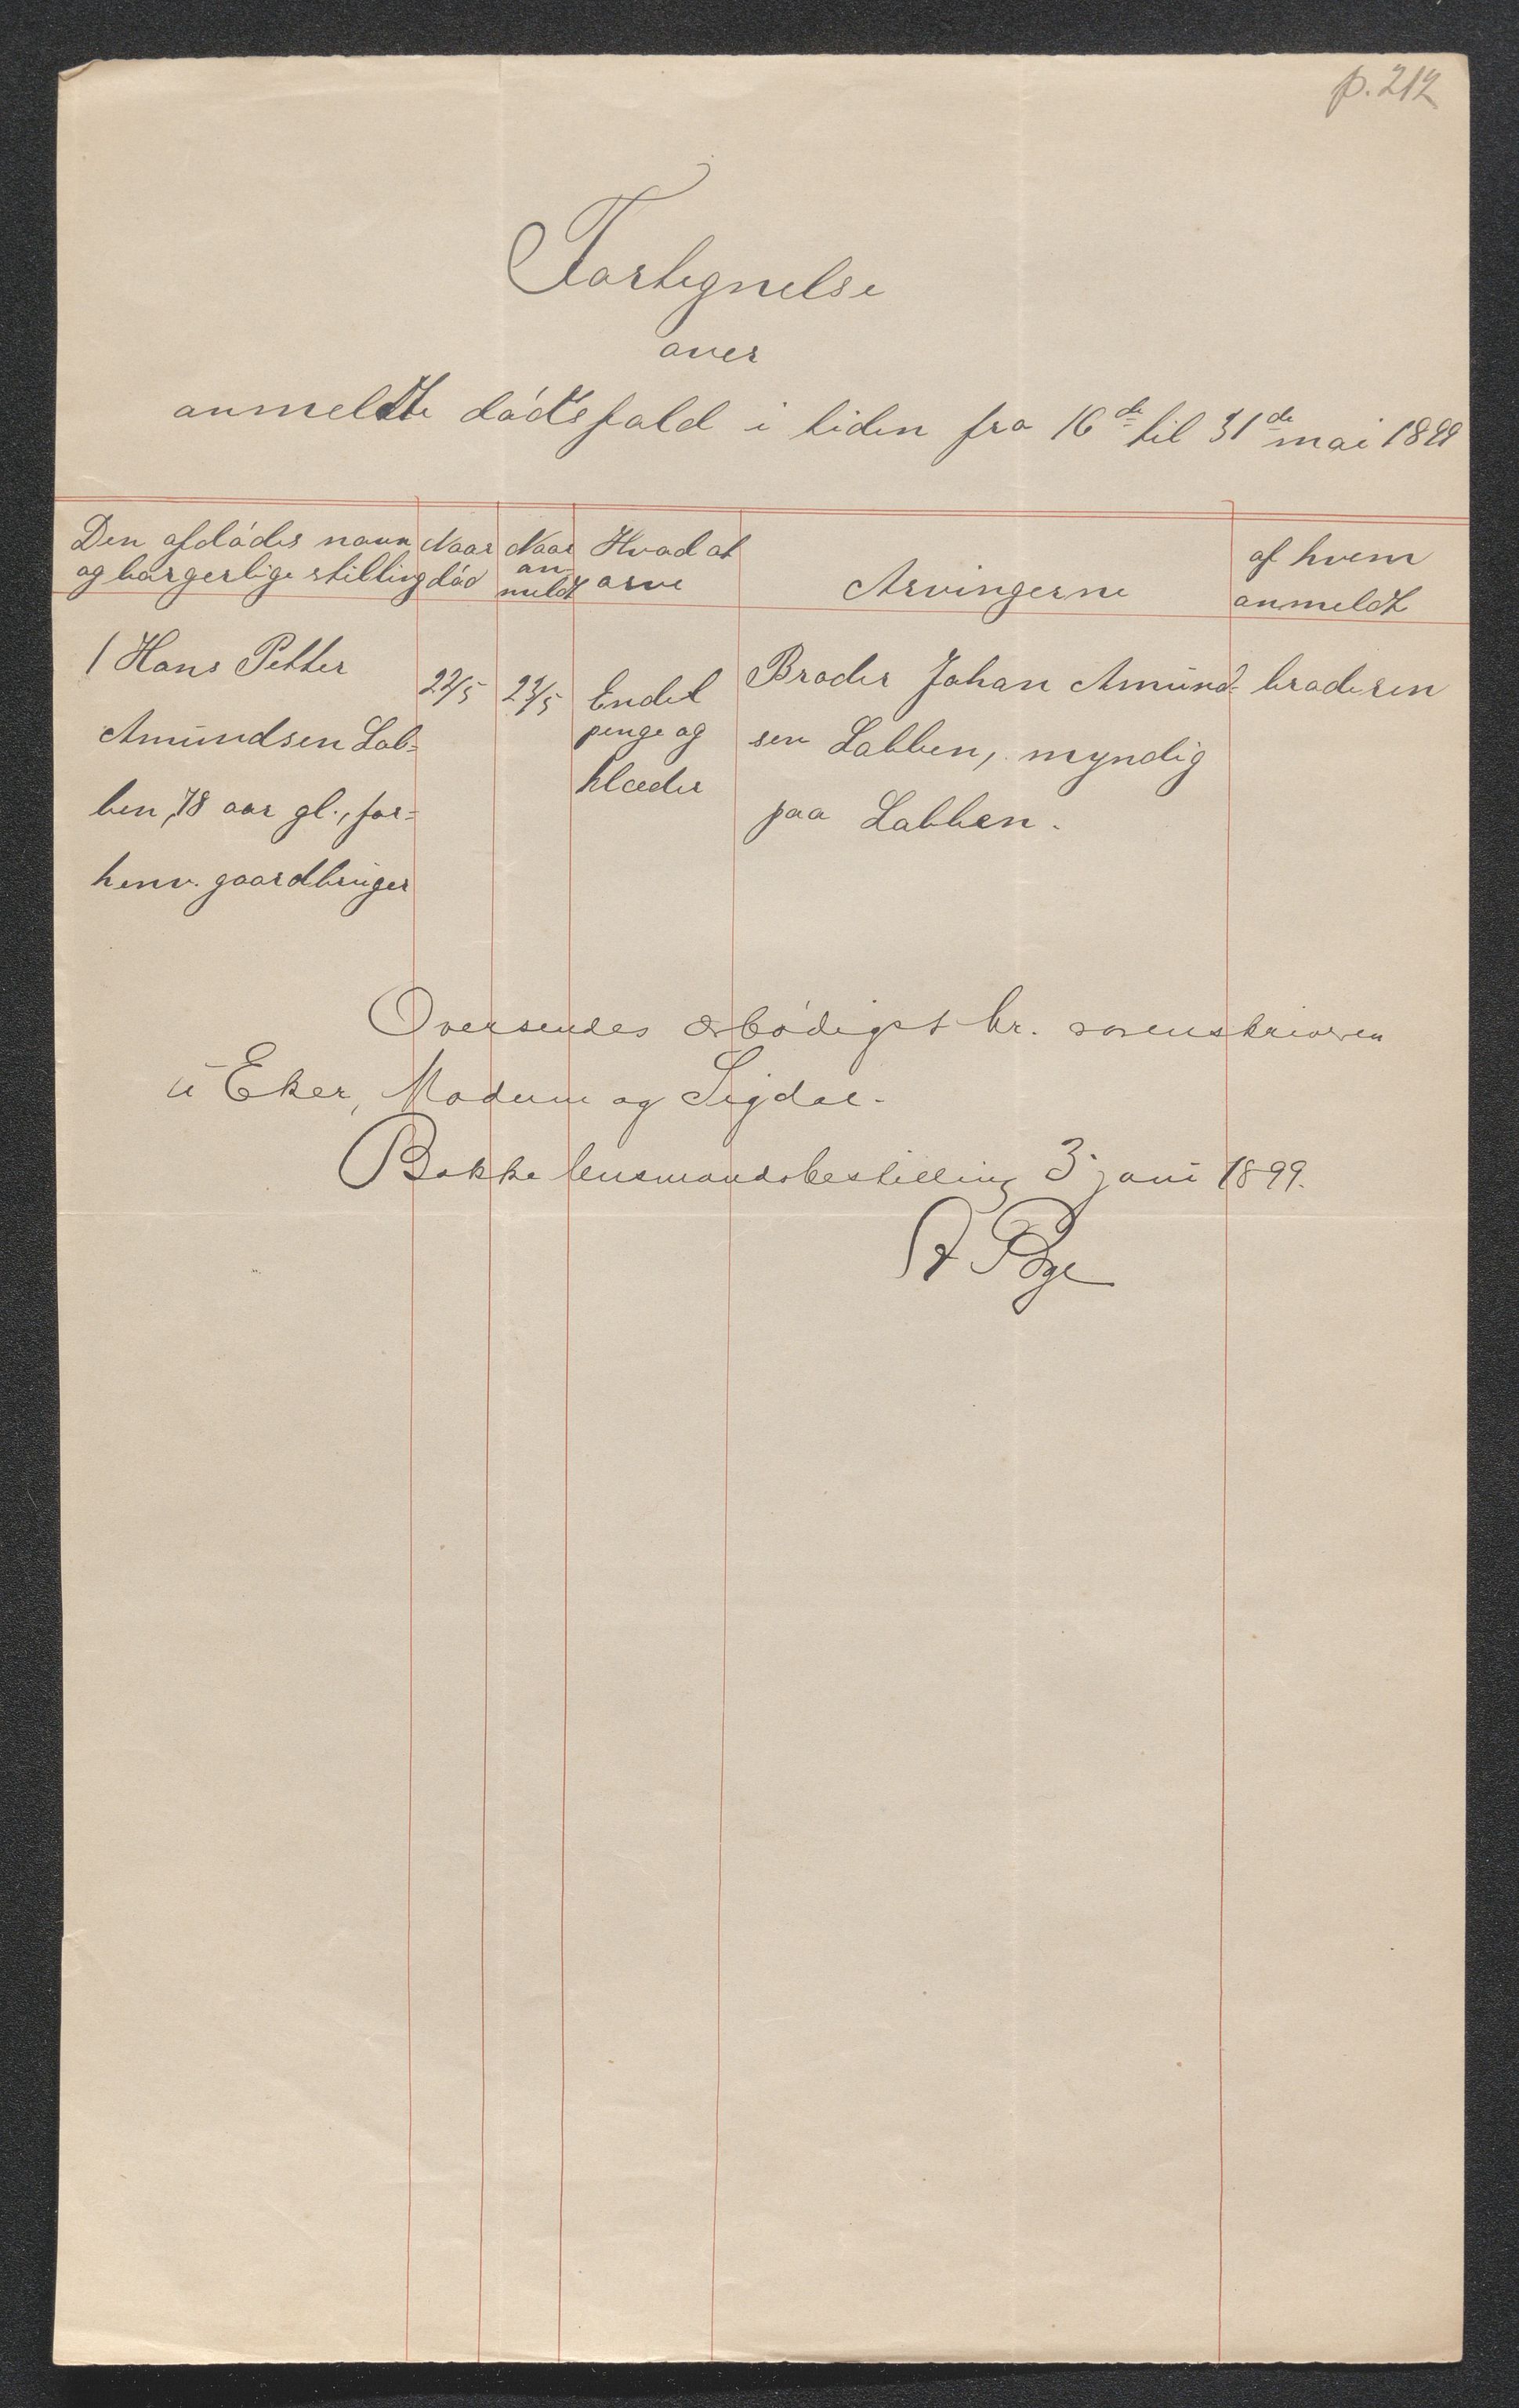 p. 212
Fortegnelse
over
anmeldte dódsfald i tiden fra 16de til 31de mai 1899
Den afdódes navn
og borgerlige stilling
Naar
dód
Naar
an-
meldt
Hvad at
arve
Arvingerne
af hvem
anmeldt
1 Hans Petter
Amundsen Lob-
ben, 78 aar gl., for-
henv. gaardbruger
22/5
23/5
Endel
penge og
klæder
Broder Johan Amund-
sen Lobben, myndig
paa Lobben.
broderen
Oversendes ærbódigst hr. sorenskriveren
i Eker, Modum og Sigdal.
Bakke lensmandsbestilling 3 juni 1899.